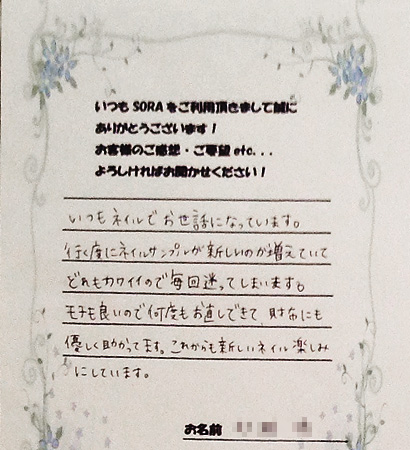 いつもSORAをご利用頂きまして誠に
ありがとうございます！
お客様のご感想・ご要望etc...
よろしければお聞かせください！
いつもネイルでお世話になっています。
行く度にネイルサンプルが新しいのが増えていて
どれもカワイイので毎回迷ってしまいます。
モチも良いので何度もお直しできて、財布にも
優しく助かってます。これからも新しいネイル楽しみ
にしています。
お名前